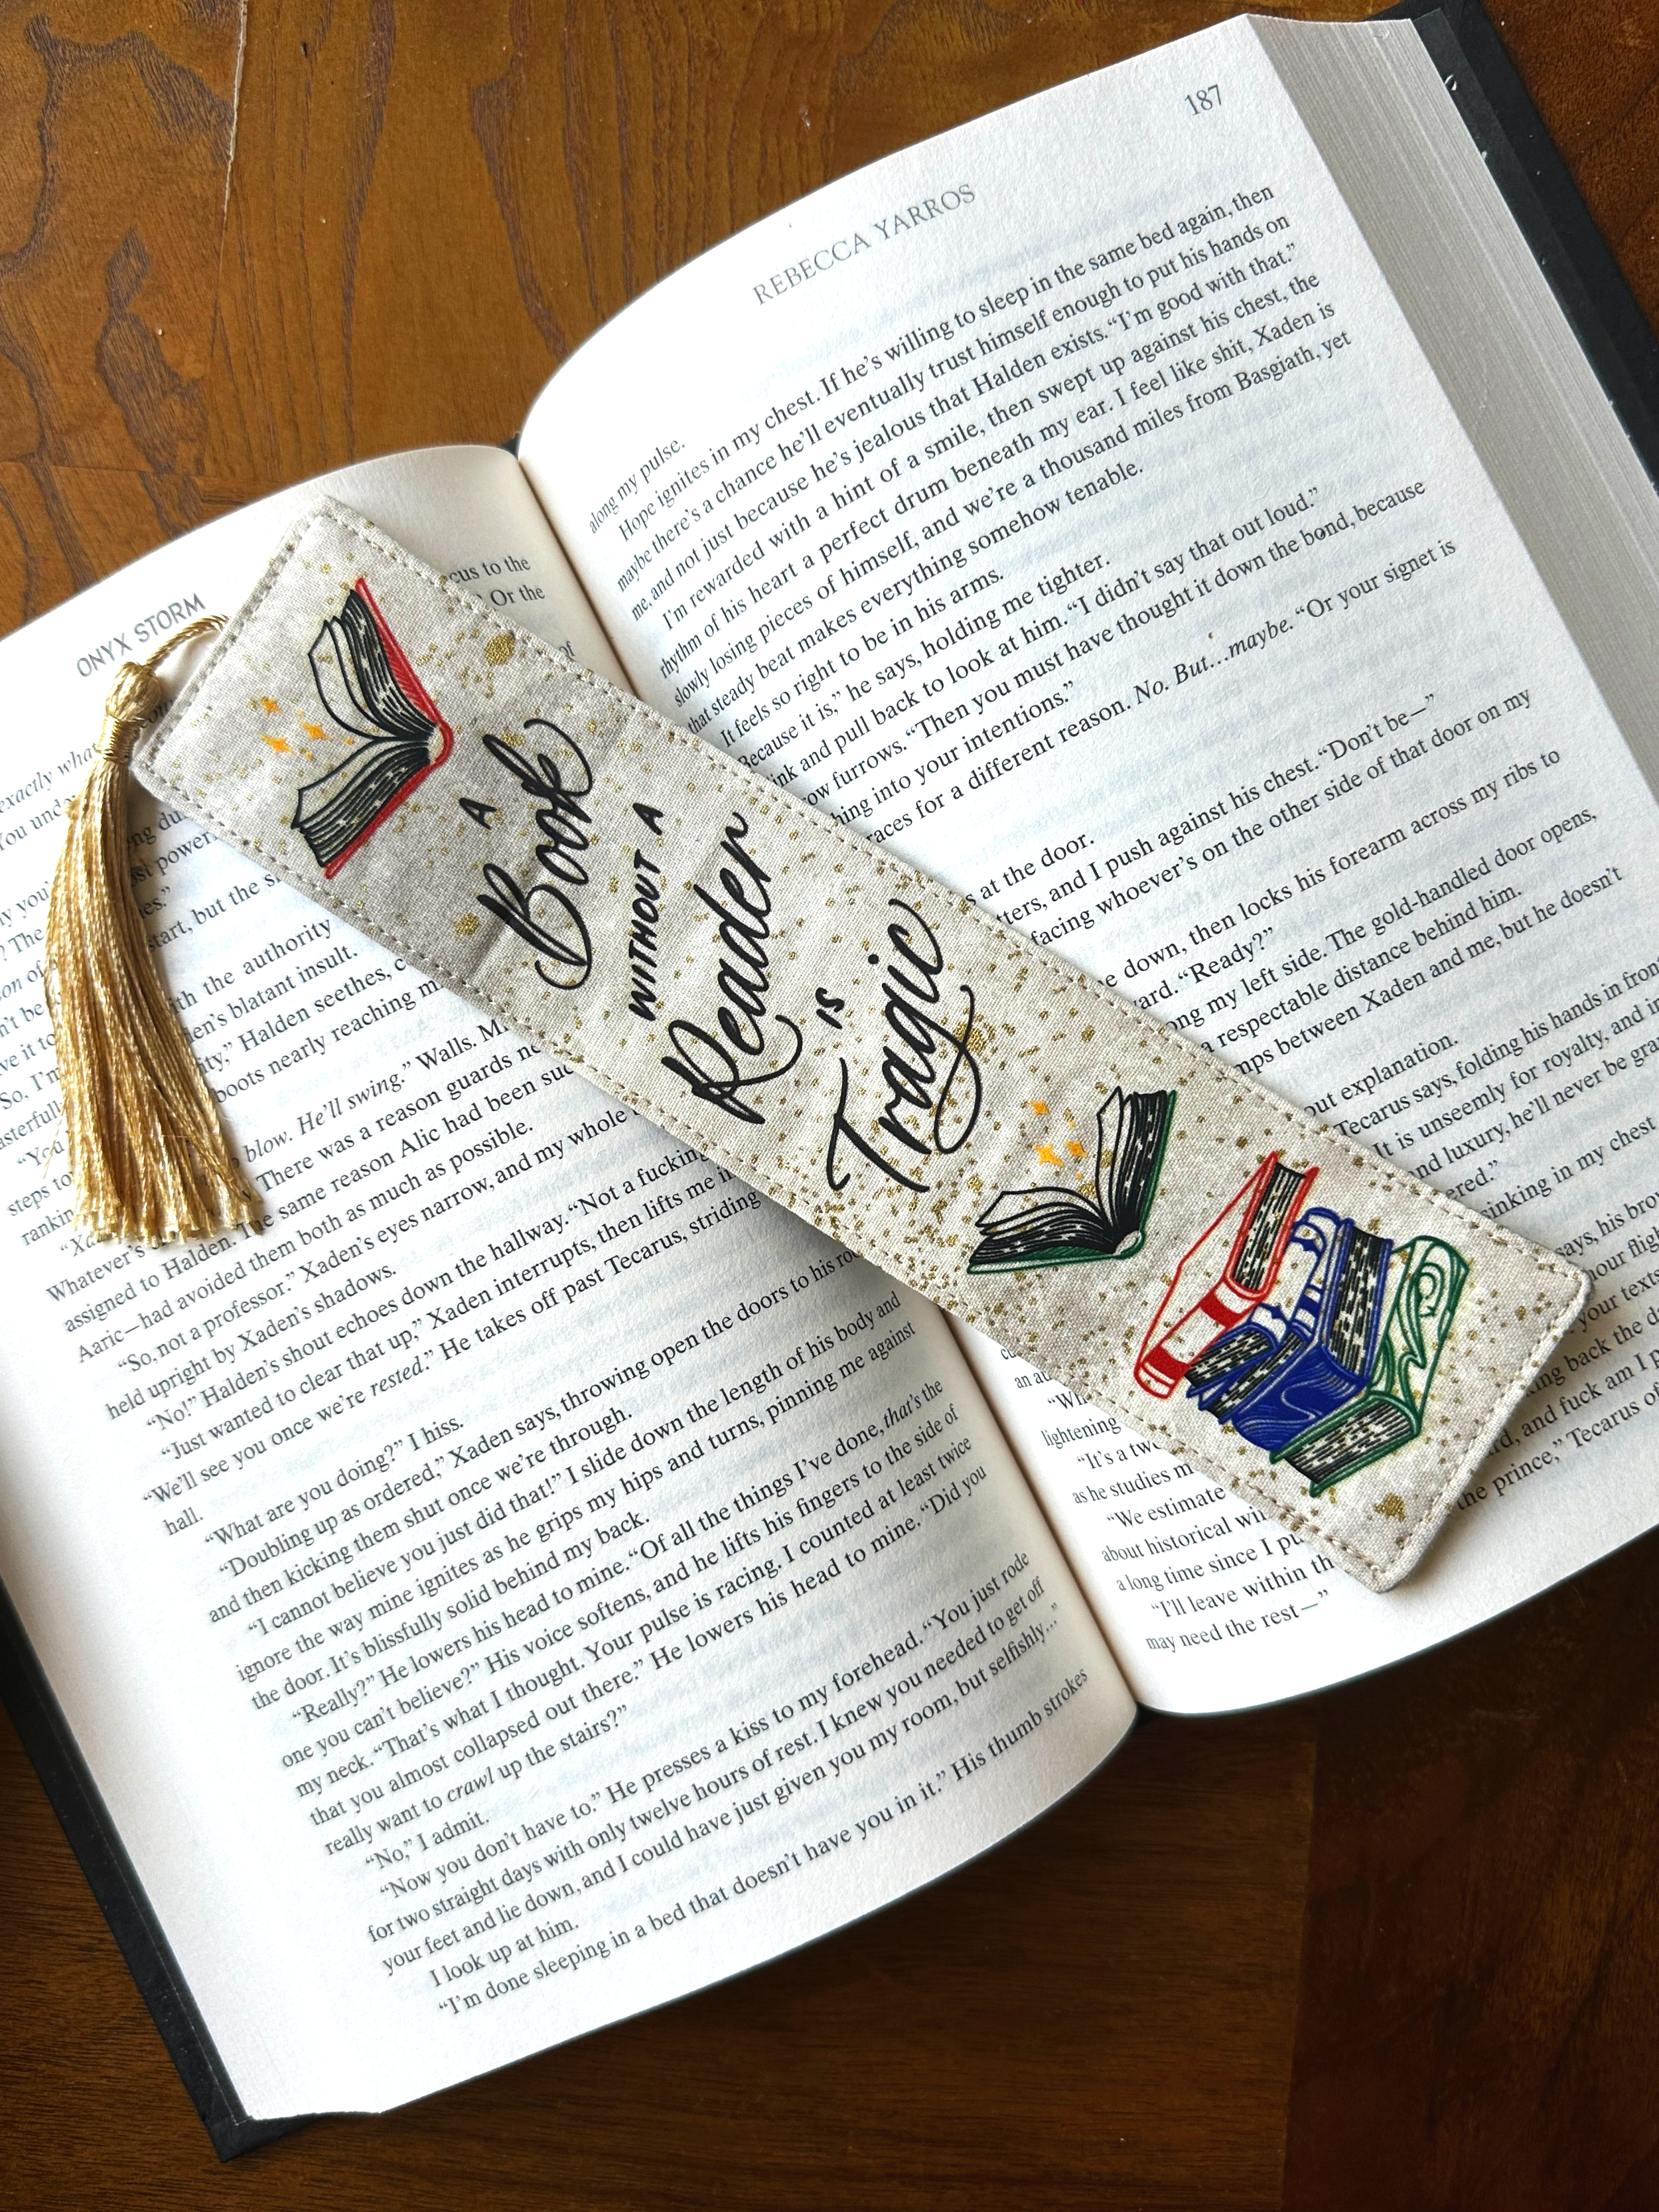 ONYX STORM
cus to the
Or the
of
exactly what
You und
ng du
st power
es.”
start, but the s
ith the authority
en’s blatant insult.
ity,” Halden seethes, c
boots nearly reaching m
blow. He’ll swing.” Walls. M
There was a reason guards n
The same reason Alic had been suc
assigned to Halden.
Aaric—had avoided them both as much as possible.
“So, not a professor.” Xaden’s eyes narrow, and my whole
held upright by Xaden’s shadows.
“No!” Halden’s shout echoes down the hallway. “Not a fucking
“Just wanted to clear that up,” Xaden interrupts, then lifts me i
We’ll see you once we’re rested.” He takes off past Tecarus, striding
hall.
“What are you doing?” I hiss.
“Doubling up as ordered,” Xaden says, throwing open the doors to his ro
and then kicking them shut once we’re through.
“I cannot believe you just did that!” I slide down the length of his body and
ignore the way mine ignites as he grips my hips and turns, pinning me against
the door. It’s blissfully solid behind my back.
“Really?” He lowers his head to mine. “Of all the things I’ve done, that’s the
one you can’t believe?” His voice softens, and he lifts his fingers to the side of
my neck. “That’s what I thought. Your pulse is racing. I counted at least twice
that you almost collapsed out there.” He lowers his head to mine. “Did you
really want to crawl up the stairs?”
“No,” I admit.
“Now you don’t have to.” He presses a kiss to my forehead. “You just rode
for two straight days with only twelve hours of rest. I knew you needed to get off
your feet and lie down, and I could have just given you my room, but selfishly…”
I look up at him.
“I’m done sleeping in a bed that doesn’t have you in it.” His thumb strokes
A
Book
WITHOUT A
Reader
IS
Tragic
187
REBECCA YARROS
along my pulse.
Hope ignites in my chest. If he’s willing to sleep in the same bed again, then
maybe there’s a chance he’ll eventually trust himself enough to put his hands on
me, and not just because he’s jealous that Halden exists. “I’m good with that.”
I’m rewarded with a hint of a smile, then swept up against his chest, the
rhythm of his heart a perfect drum beneath my ear. I feel like shit, Xaden is
slowly losing pieces of himself, and we’re a thousand miles from Basgiath, yet
that steady beat makes everything somehow tenable.
It feels so right to be in his arms.
Because it is,” he says, holding me tighter.
ink and pull back to look at him. “I didn’t say that out loud.”
ow furrows. “Then you must have thought it down the bond, because
hing into your intentions.”
races for a different reason. No. But…maybe. “Or your signet is
s at the door.
tters, and I push against his chest. “Don’t be—”
facing whoever’s on the other side of that door on my
e down, then locks his forearm across my ribs to
ard. “Ready?”
ong my left side. The gold-handled door opens,
a respectable distance behind him.
mps between Xaden and me, but he doesn’t
out explanation.
Tecarus says, folding his hands in front
It is unseemly for royalty, and i
nd luxury, he’ll never be gra
ered.”
sinking in my chest
says, his bro
hour flig
your texts
ing back the d
rd, and fuck am I p
the prince,” Tecarus o
an a
“Wh
lightening
“It’s a tw
as he studies m
“We estimate
about historical wi
a long time since I pu
“I’ll leave within th
may need the rest—”